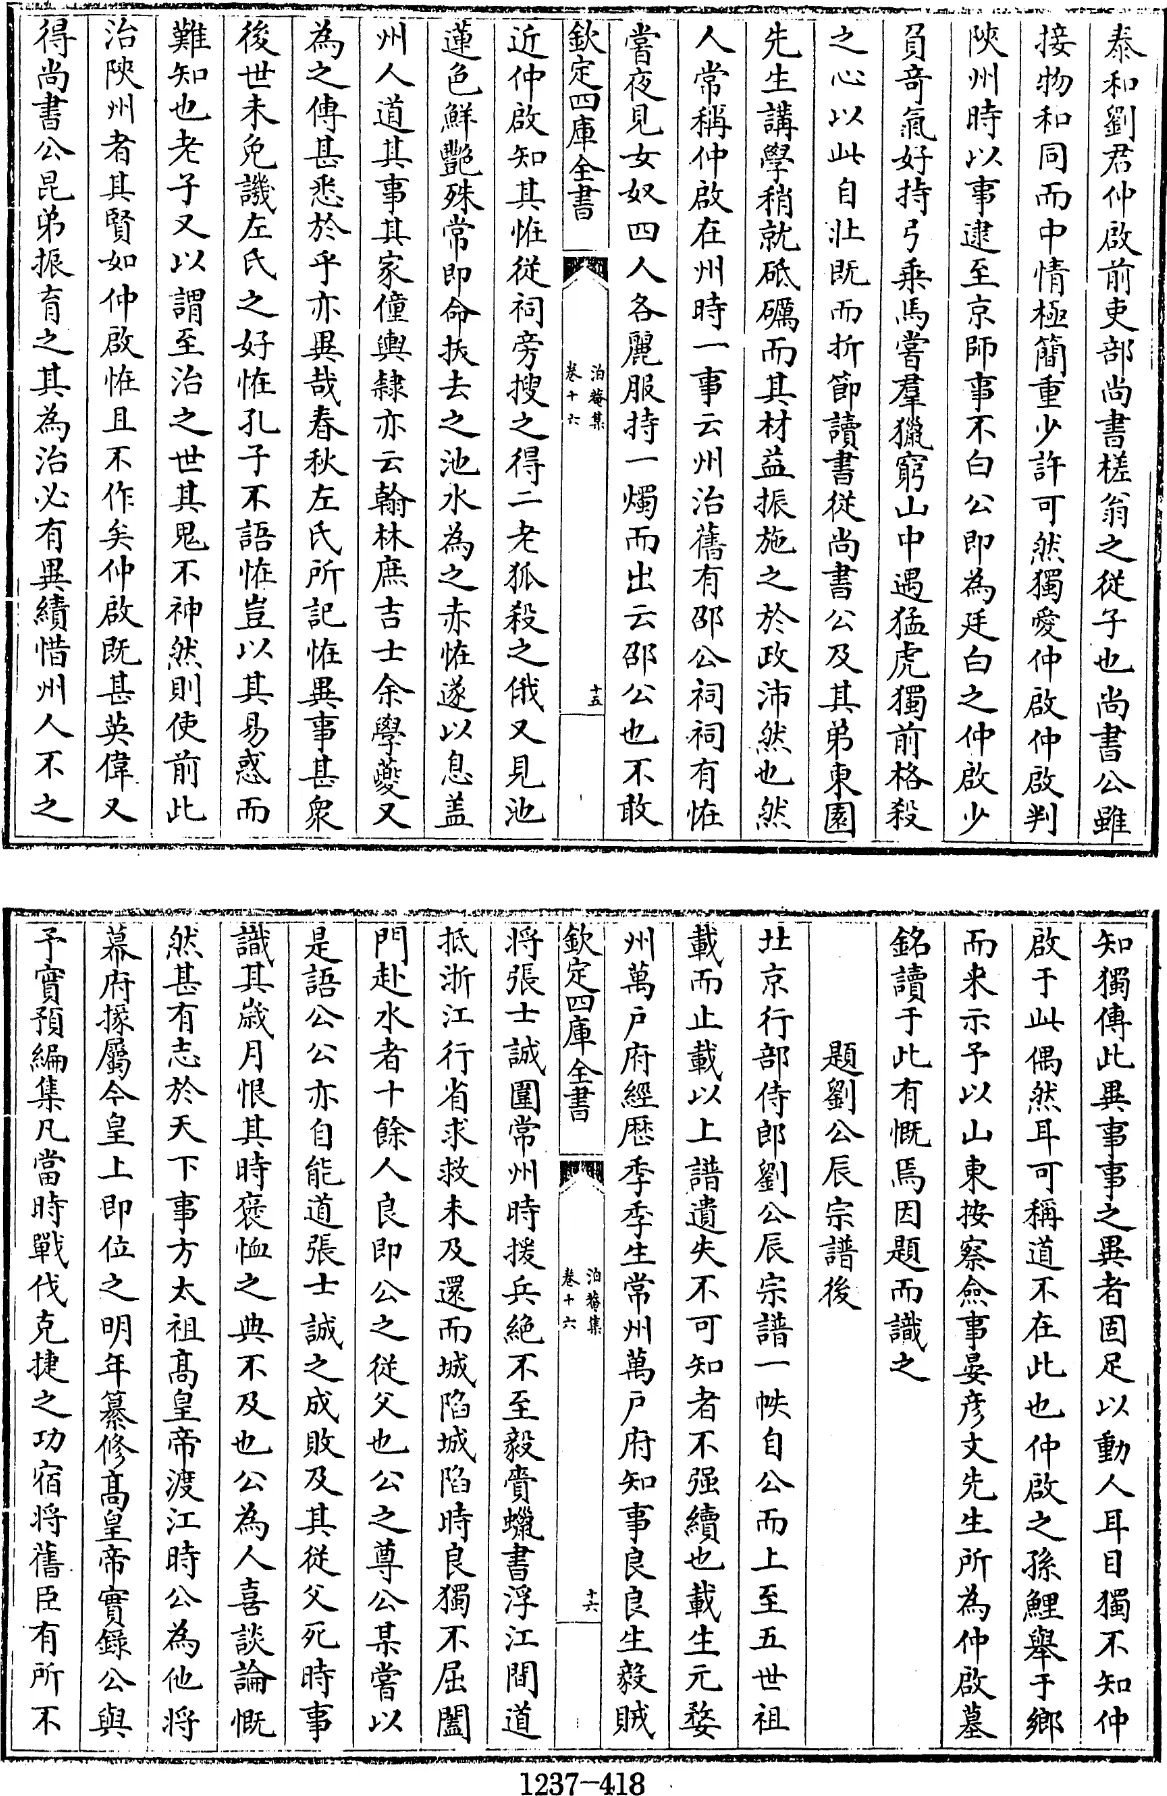 泰和劉君仲啟前吏部尚書槎翁之從子也尚書公雖
接物和同而中情極簡重少許可然獨愛仲啟仲啟判
陜州時以事逮至京師事不白公即為廷白之仲啟少
負竒氣好持弓乗馬嘗羣獵窮山中遇猛虎獨前格殺
之心以此自壯既而折節讀書從尚書公及其弟東園
先生講學稍就砥礪而其材益振施之於政沛然也然
人常稱仲啟在州時一事云州治舊有邵公祠祠有恠
嘗夜見女奴四人各麗服持一燭而出云邵公也不敢
欽定四庫全書
泊菴集
卷十六
十五
近仲啟知其恠從祠旁搜之得二老狐殺之俄又見池
蓮色鮮艷殊常即命㧞去之池水為之赤恠遂以息盖
州人道其事其家僮輿隸亦云翰林庶吉士余學夔又
為之傳甚悉於乎亦異哉春秋左氏所記恠異事甚衆
後世未免譏左氏之好恠孔子不語恠豈以其易惑而
難知也老子又以謂至治之世其鬼不神然則使前此
治陜州者其賢如仲啟恠且不作矣仲啟既甚英偉又
得尚書公昆弟振育之其為治必有異績惜州人不之
知獨傳此異事事之異者固足以動人耳目獨不知仲
啟于此偶然耳可稱道不在此也仲啟之孫鯉舉于鄉
而来示予以山東按察僉事晏彦文先生所為仲啟墓
銘讀于此有慨焉因題而識之
題劉公辰宗譜後
北京行部侍郎劉公辰宗譜一帙自公而上至五世祖
載而止載以上譜遺失不可知者不强續也載生元婺
州萬户府經歴季季生常州萬户府知事良良生毅賊
欽定四庫全書
泊菴集
卷十六
十六
將張士誠圍常州時援兵絶不至毅賫蠟書浮江間道
抵浙江行省求救未及還而城陷城陷時良獨不屈闔
門赴水者十餘人良即公之從父也公之尊公某嘗以
是語公公亦自能道張士誠之成敗及其從父死時事
識其歳月恨其時褒恤之典不及也公為人喜談論慨
然甚有志於天下事方太祖髙皇帝渡江時公為他將
幕府掾屬今皇上即位之明年纂修髙皇帝實録公與
予實預編集凡當時戰伐克捷之功宿將舊臣有所不
1237-418